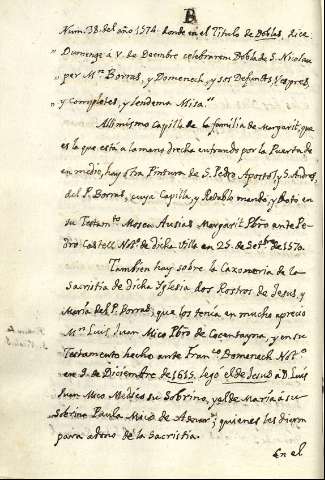 B
Num. 38. del año 1574. donde en el Titulo de Dobles, dice
Dumenge a V. de Deembre celebrarem Dobla de S. Nicolau
per Mn. Borras, y Domenech, y sos Defunts, Vespres,
y Completes, y lendema Misa.
Assimismo Capilla de la familia de Margarit, que
es la que està a la mano drecha entrando por la Puerta de
en medio, hay otra Pintura de S. Pedro Apostol, y S. Andres,
del P. Borras, cuya Capilla, y Retablo mandò, y dotò en
su Testamto. Mosen Ausias Margarit Pbro ante Pe-
dro Castell Noto. de dicha Villa en 25. de Setbe. de 1570.
Tambien hay sobre la Caxoneria de la
Sacristia de dicha Iglesia dos Rostros de Jesus, y
Maria del P. Borras; que los tenia en mucho aprecio
Mn. Luis Juan Micò Pbro de Cocentayna, y en su
Testamento hecho ante Franco. Domenech Noto.
en 9. de Diciembre de 1615. legò el de Jesus a D. Luis
Juan Micò Medico su Sobrino, y el de Maria à su
Sobrina Paula Micò de; quienes les dieron
para adorno de la Sacristia.
En el